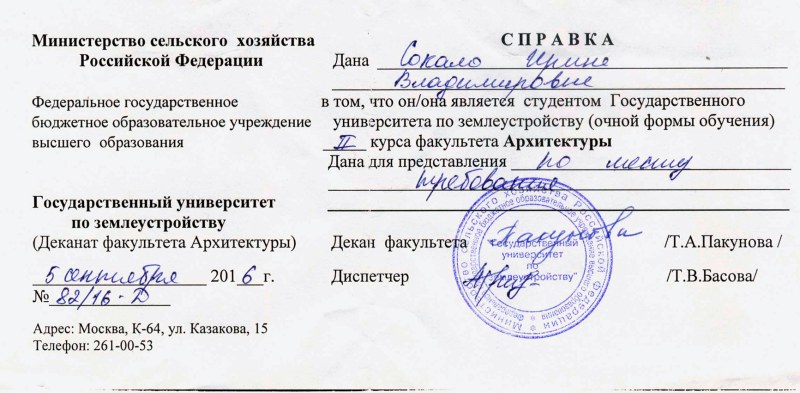 Министерство сельского хозяйства
Российской Федерации
Федеральное государственное
бюджетное образовательное учреждение
высшего образования
Государственный университет
по землеустройству
(Деканат факультета Архитектуры)
5 сентября 2016 г.
№ 82/16-Д
Адрес: Москва, К-64, ул. Казакова, 15
Телефон: 261-00-53
СПРАВКА
Дана Сокало Ирине
Владимировне
в том, что он/она является студентом Государственного
университета по землеустройству (очной формы обучения)
II курса факультета Архитектуры
Дана для представления по месту
требования
Декан факультета Пакунова /Т.А.Пакунова /
Диспетчер /Т.В.Басова/
"Государственный
университет
по
землеустройству"